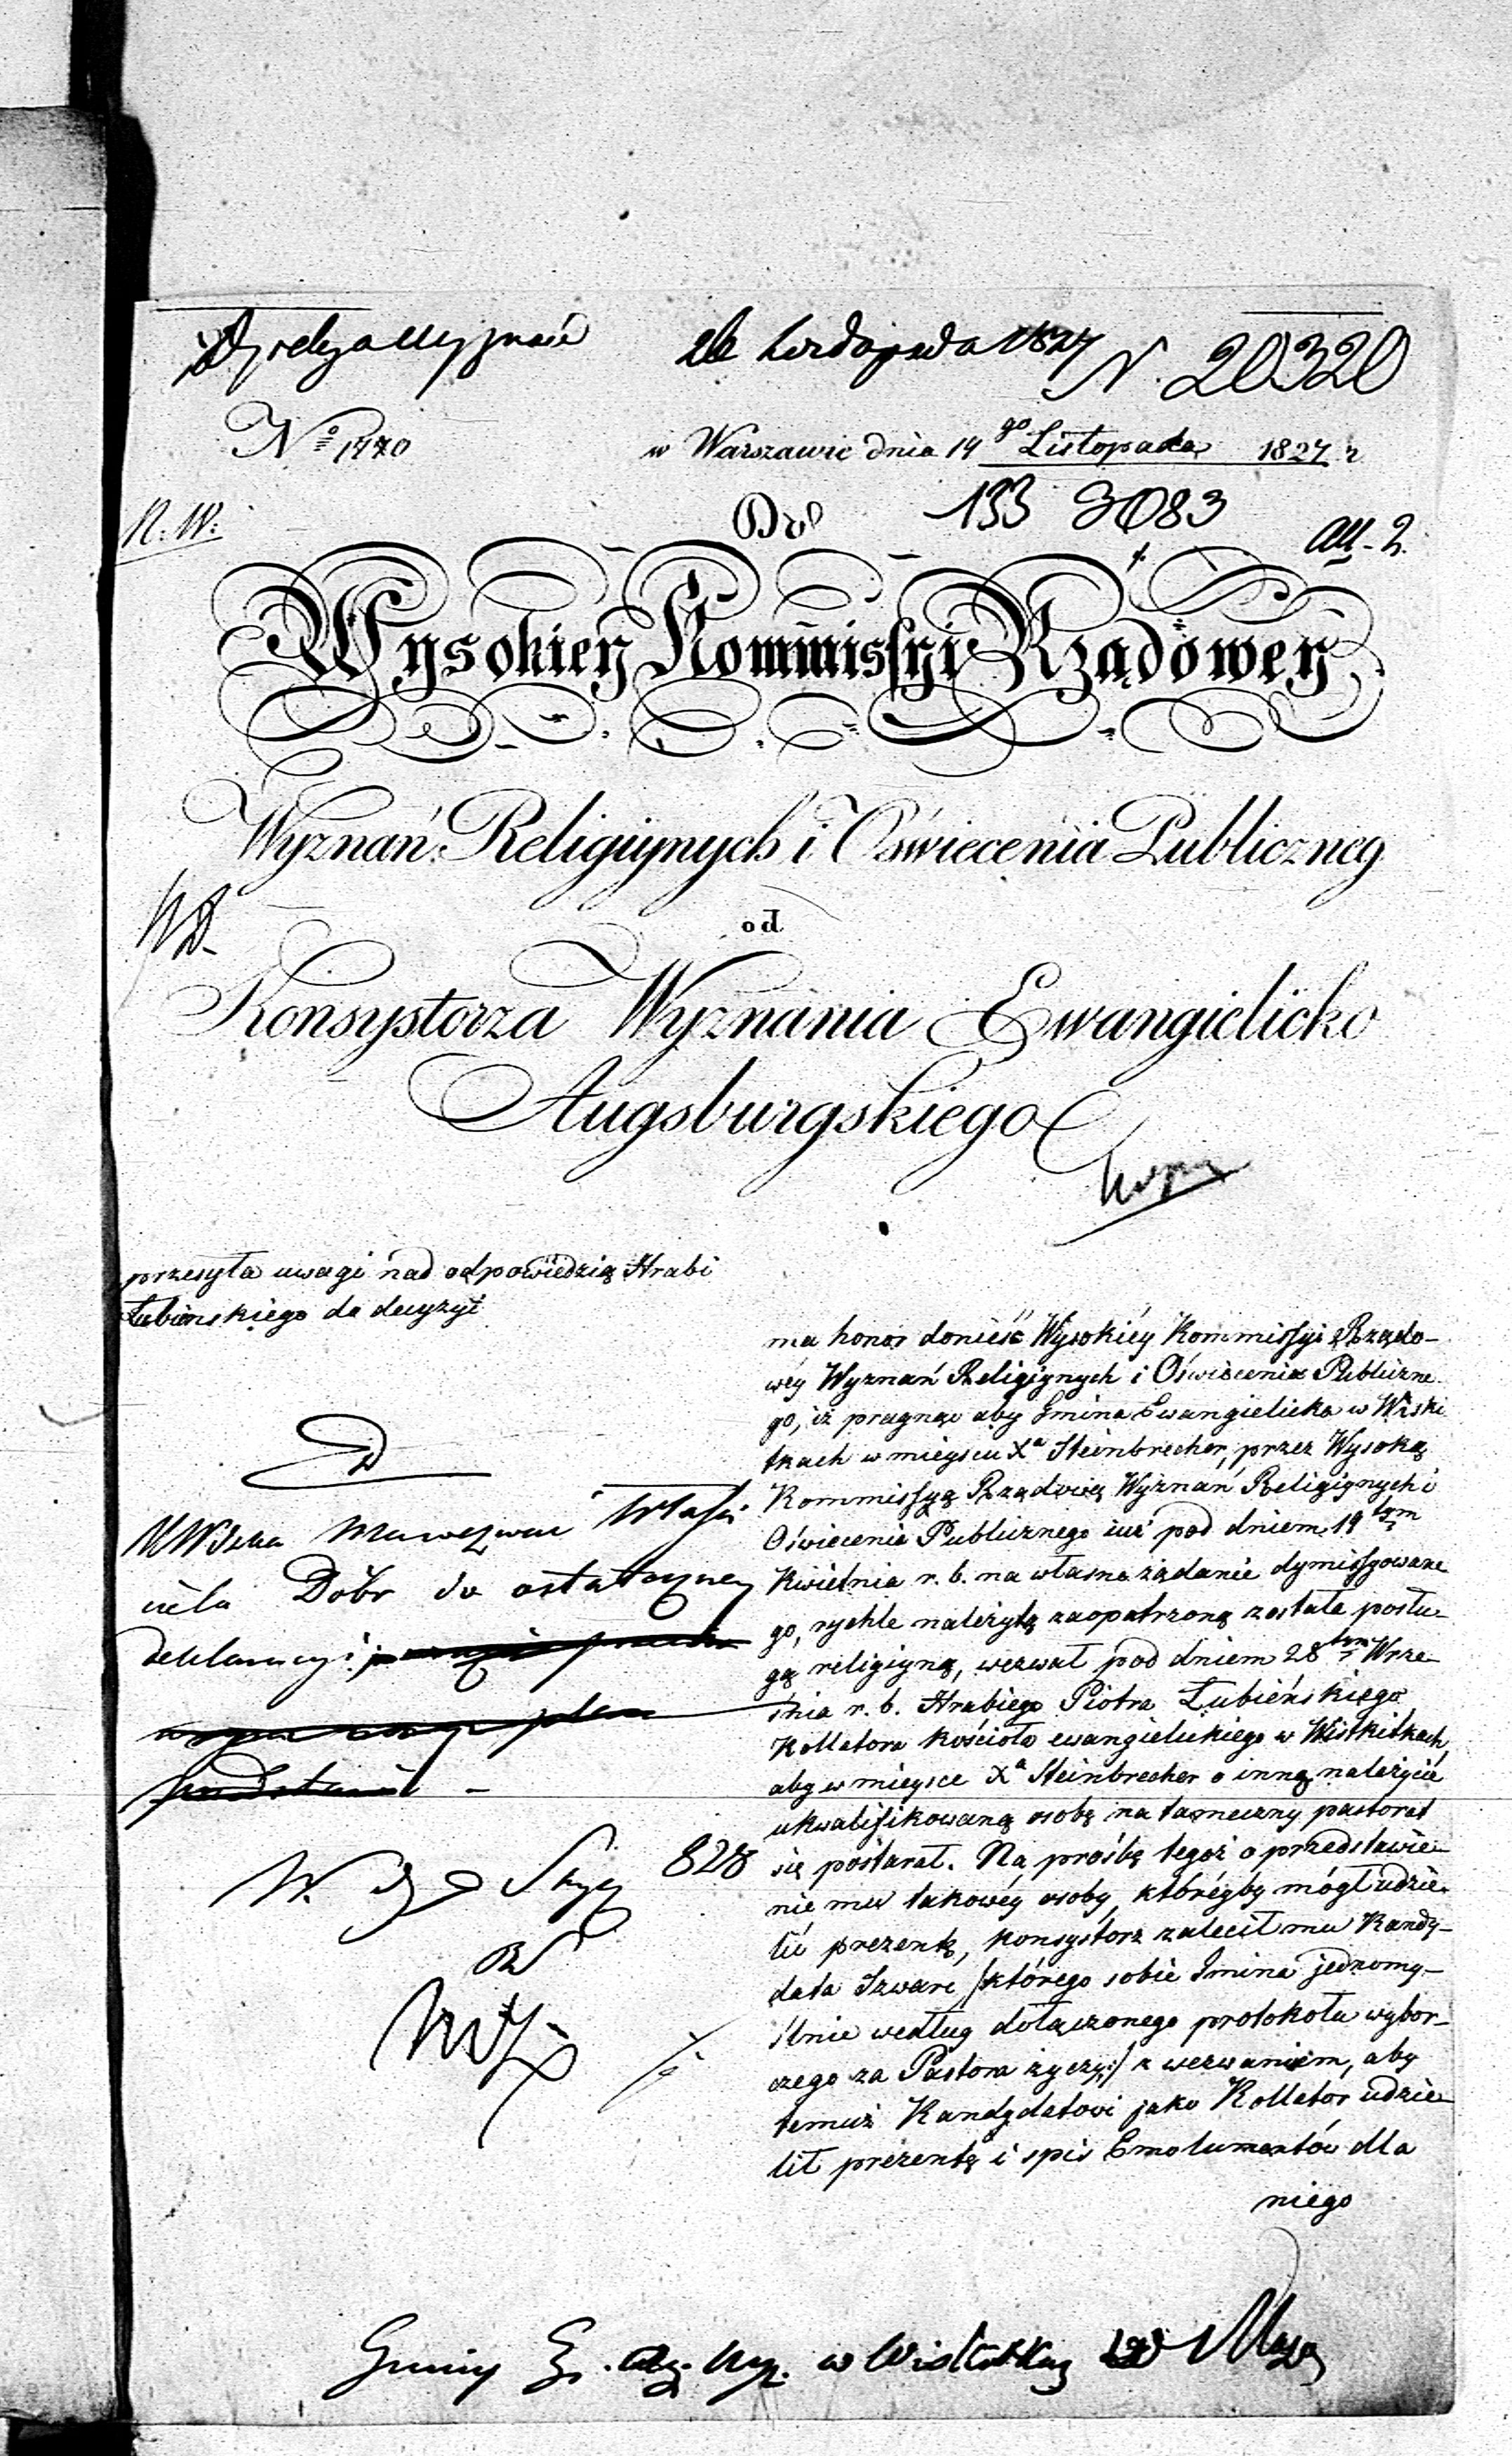 Listopada 1827 N. 20320
No 1770 w Warszawie dnia 14go Listopada 1827 r.
N. W. Do 133 3083 All. 2.
Wysokiey Kommissyi Rządowey
Wyznań Religiynych i Oświecenia Publiczneg
od
Konsystorza Wyznania Ewangielicko
Augsburgskiego
przesyła uwagi nad odpowiedzią Hrabi
Łubieńskiego do decyzyi
właści
ciela Dóbr do ostateczney
deklaracyi
828
ma honor donieść Wysokiéy Kommissyi Rządo-
wéy Wyznań Religiynych i Oświecenia Publiczne-
go, iż pragnąc aby Gmina Ewangielicka w Wiski
tkach w mieyscu Xa Steinbrecher, przez Wysoką
Kommissyą Rządową Wyznań Religiynych i
Oświecenia Publicznego iuż pod dniem 19tym
Kwietnia r. b. na własne żądanie dymissyowane
go, rychle należytą zaopatrzoną została posłu-
gą religiyną, wezwał pod dniem 28tym Wrze-
śnia r. b. Hrabiego Piotra Łubieńskiego
Kollatora kościoła ewangielickiego w Wistkitkach,
aby w mieysce Xa Steinbrecher o inną należycie
ukwalifikowaną osobę na tameczny pastorat
się postarał. Na prośbę tegoż o przedstawie-
nie mu takowéy osoby, któréyby mógł udzie-
lić prezentę, konsystorz zalecił mu Kandy-
data Szwarc /:którego sobie Gmina jednomy-
ślnie według dołączonego protokołu wybor-
czego za Pastora życzy:/ z wezwaniem, aby
temuż Kandydatowi jako Kollator udzie-
lił prezentę i spis Emolumentów dla
niego
Gminy Ew. Aug. w Wistkitkach